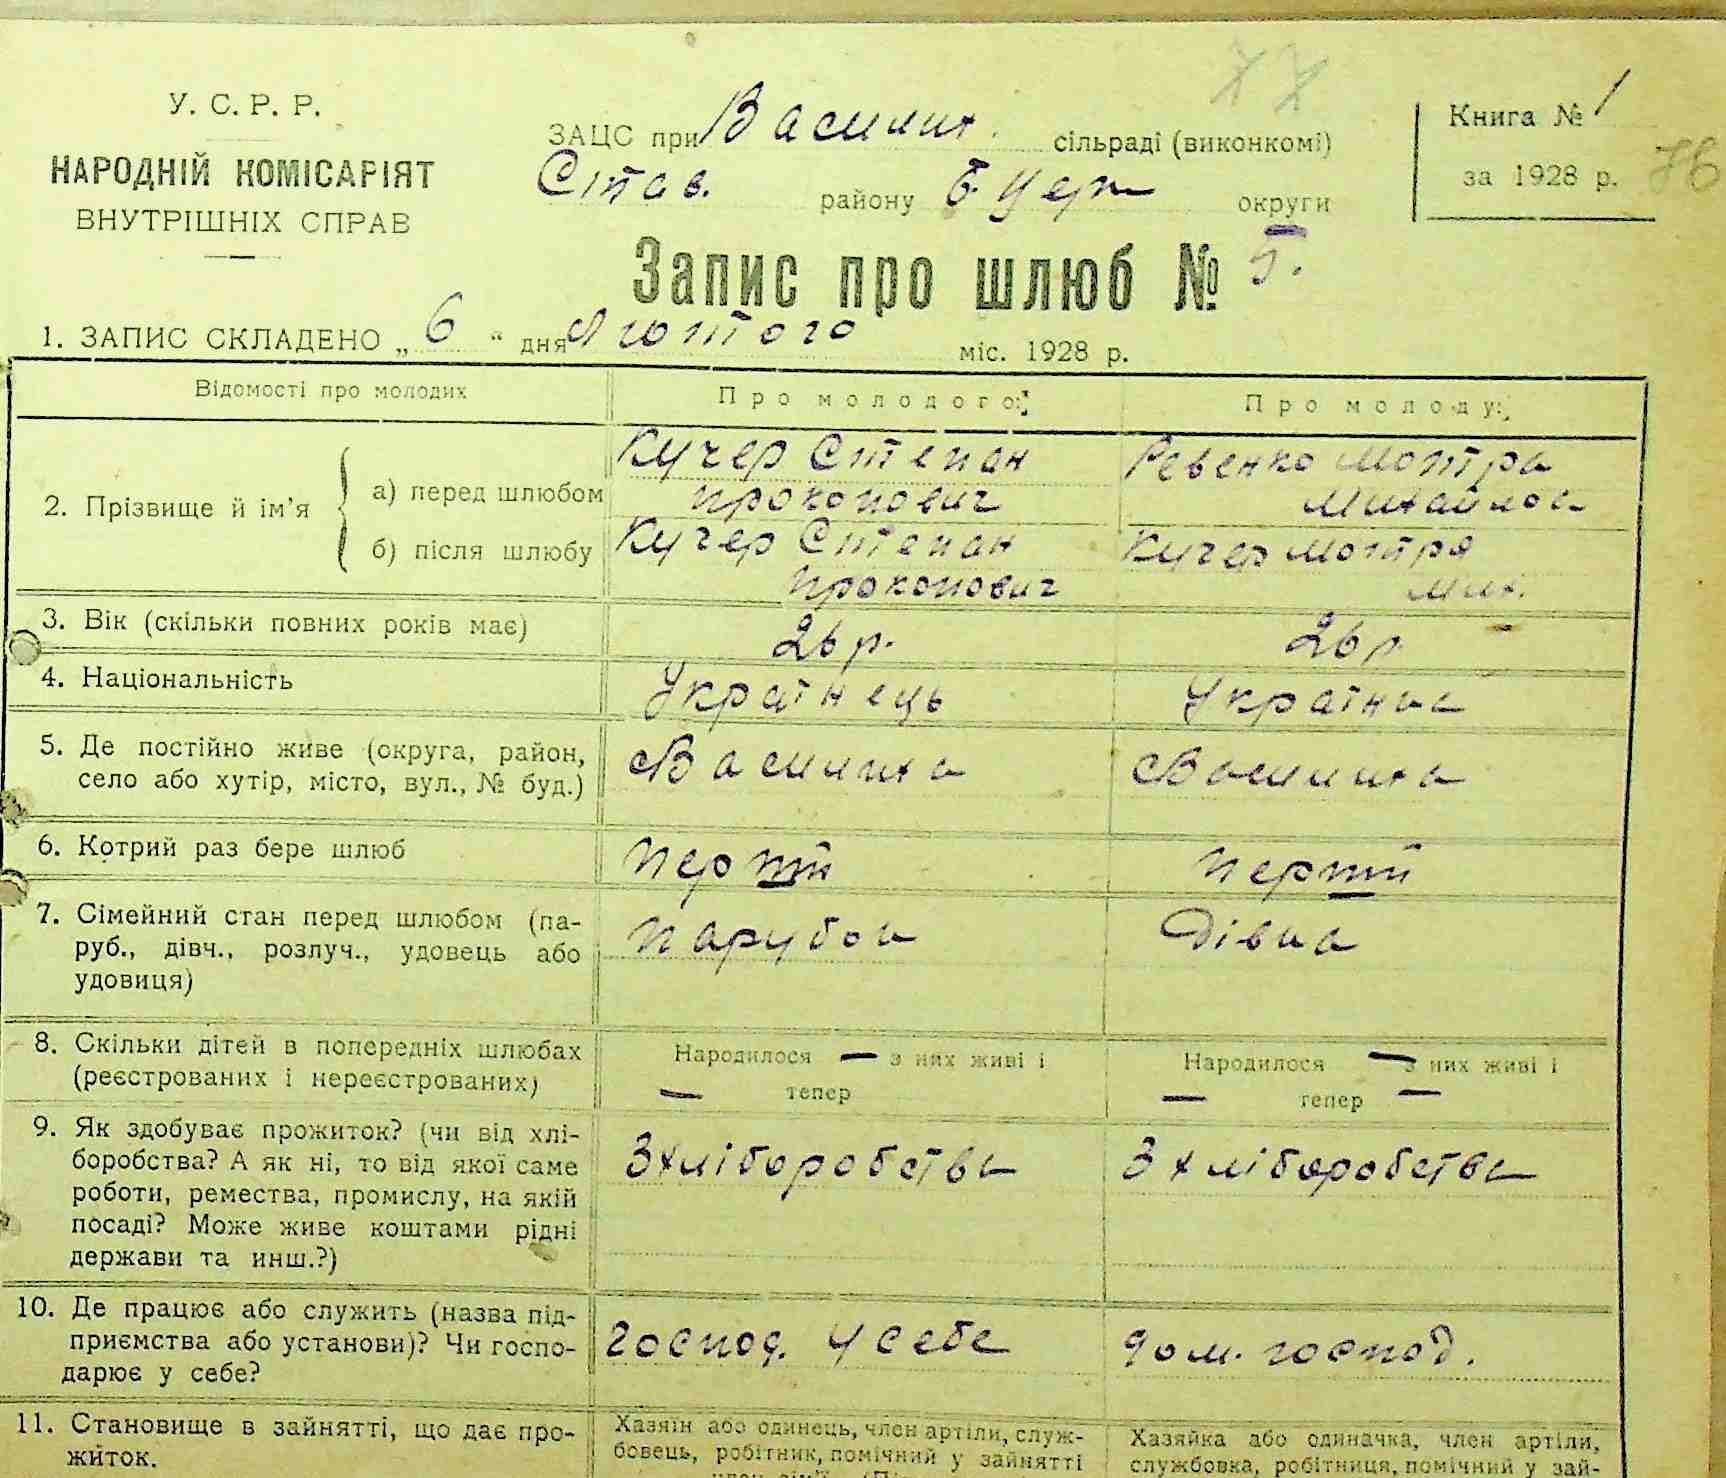 У. С. Р. Р.
НАРОДНІЙ КОМІСАРІЯТ
ВНУТРІШНІХ СПРАВ
ЗАЦС при Василих. сільраді (виконкомі)
Став. району Б Церк округи
Книга № 1
за 1928 р.
Запис про шлюб № 5.
1. ЗАПИС СКЛАДЕНО „ 6 “ дня Лютого міс. 1928 р.
Відомості про молодих
Про молодого:
Про молоду:
2. Прізвище й ім'я
а) перед шлюбом
Кучер Степан
Прокопович
Ревенко Мотря
Михайлов
б) після шлюбу
Кучер Степан
Прокопович
Кучер Мотря
Мих.
3. Вік (скільки повних років має)
26 р.
26 р
4. Національність
Українець
Українка
5. Де постійно живе (округа, район,
село або хутір, місто, вул., № буд.)
Василиха
Василиха
6. Котрий раз бере шлюб
Перший
Перший
7. Сімейний стан перед шлюбом (па-
руб., дівч., розлуч., удовець або
удовиця)
Парубок
Дівка
8. Скільки дітей в попередніх шлюбах
(реєстрованих і нереєстрованих)
Народилося — з них живі і
— тепер
Народилося — з них живі і
— тепер —
9. Як здобуває прожиток? (чи від хлі-
боробства? А як ні, то від якої саме
роботи, ремества, промислу, на якій
посаді? Може живе коштами рідні
держави та инш.?)
З хліборобства
З хліборобства
10. Де працює або служить (назва під-
приємства або установи)? Чи госпо-
дарює у себе?
Господ. у себе
дом. господ.
11. Становище в зайнятті, що дає про-
житок.
Хазяїн або одинець, член артіли, служ-
бовець, робітник, помічний у зайнятті
Хазяйка або одиначка, член артіли,
службовка, робітниця, помічний у зай-